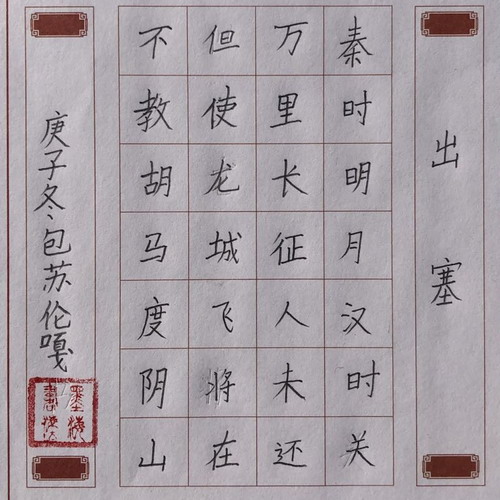 出塞
秦时明月汉时关
万里长征人未还
但使龙城飞将在
不教胡马度阴山
庚子冬包苏伦嘎